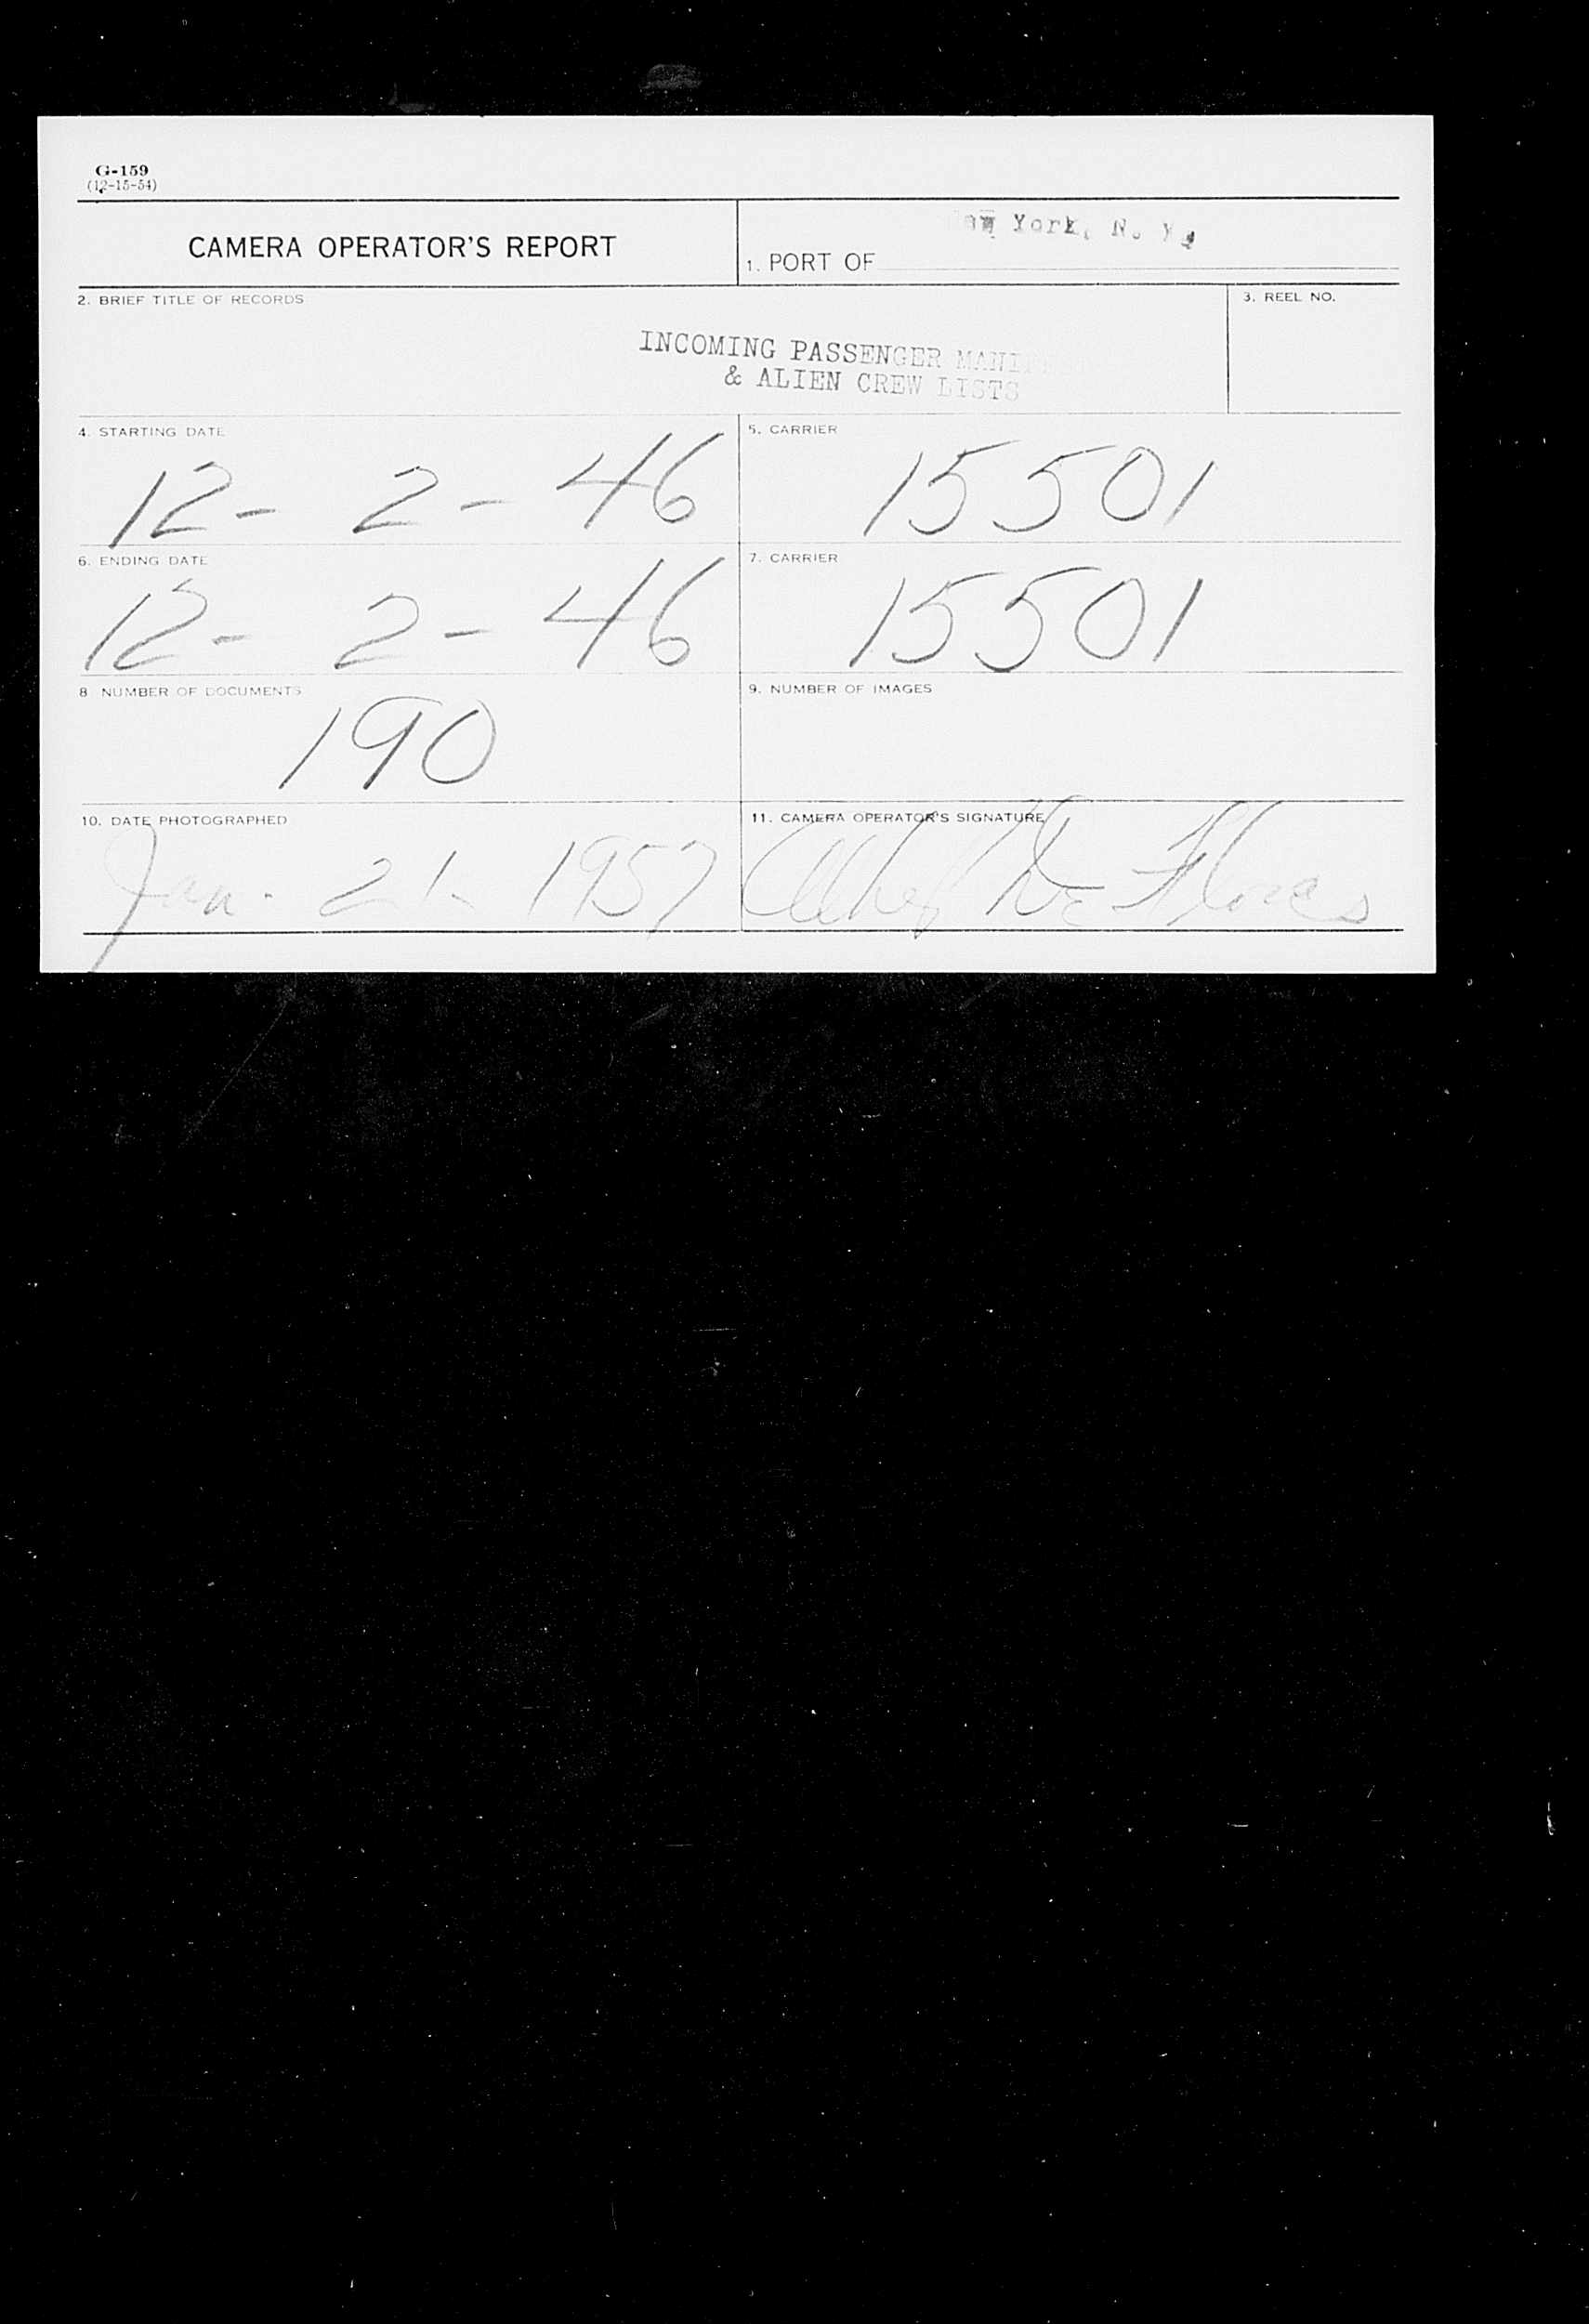 G-159
(12-15-54)
CAMERA OPERATOR'S REPORT
1. PORT OF York, N. Y.
2. BRIEF TITLE OF RECORDS
INCOMING PASSENGER
& ALIEN CREW LISTS
3. REEL NO.
4. STARTING DATE
12- 2- 46
5. CARRIER
15501
6. ENDING DATE
12- 2- 46
7. CARRIER
15501
8 NUMBER OF DOCUMENTS
190
9. NUMBER OF IMAGES
10. DATE PHOTOGRAPHED
Jan. 21- 1957
11. CAMERA OPERATOR'S SIGNATURE